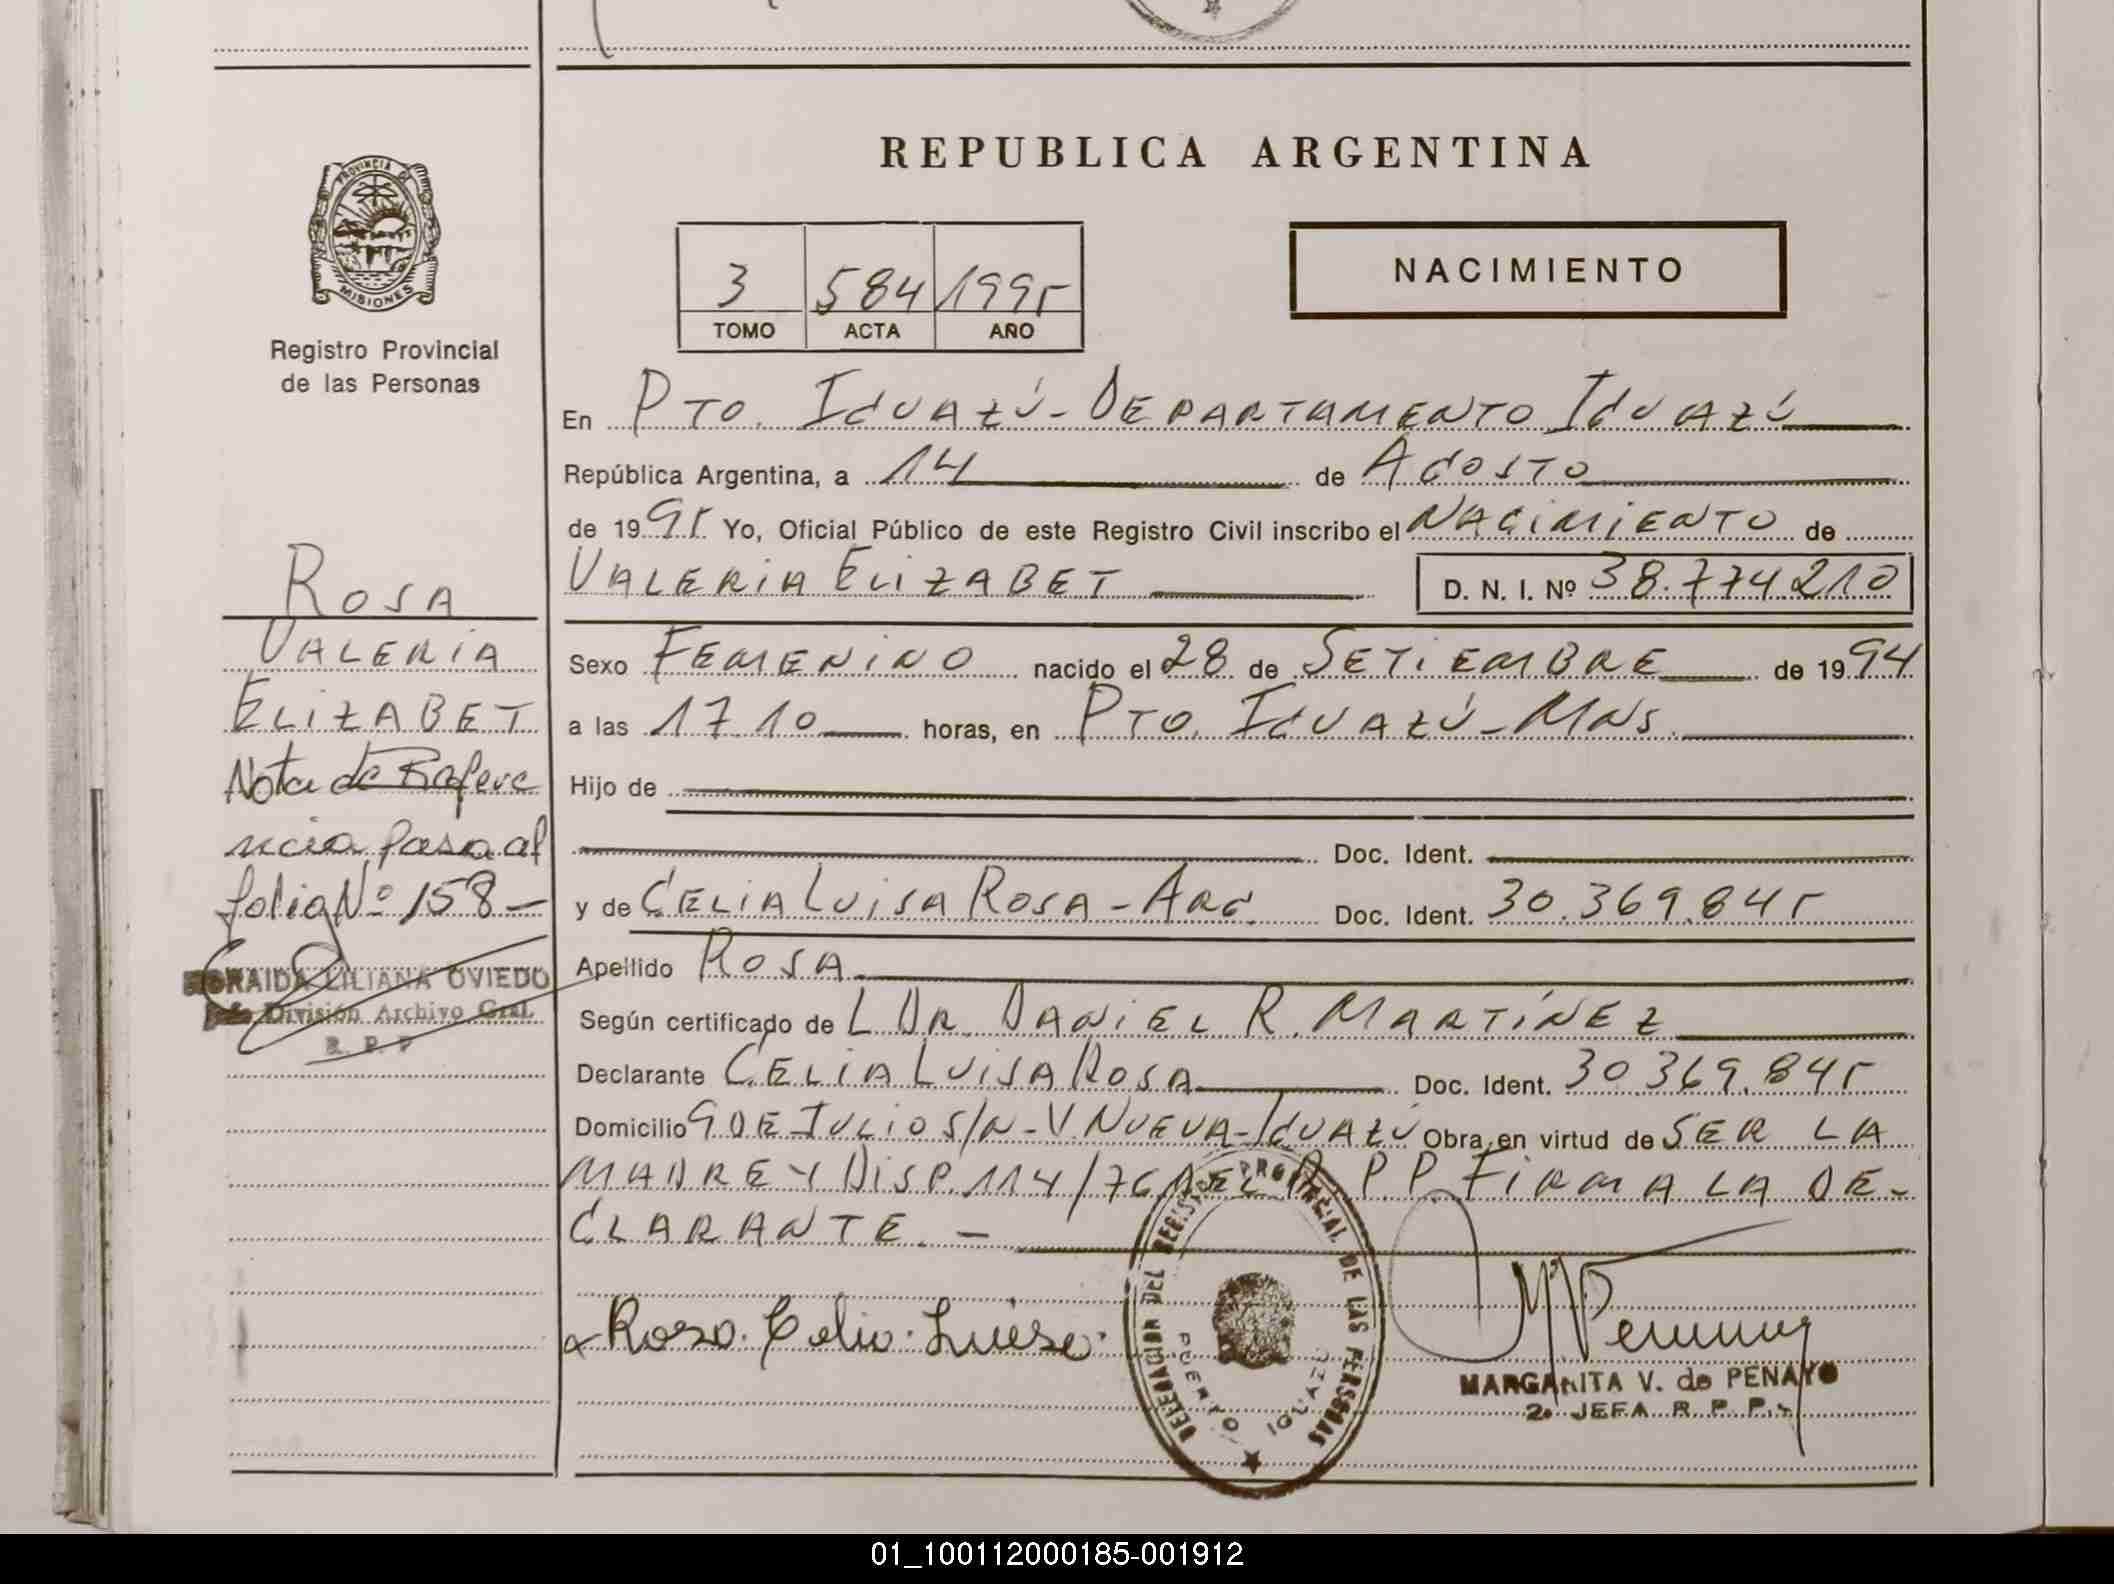 REPUBLICA ARGENTINA
PROVINCIA DE
MISIONES
Registro Provincial
de las Personas
3 584 1995
TOMO ACTA AÑO
NACIMIENTO
En Pto. Iguazú - Departamento Iguazú
República Argentina, a 14 de Agosto
de 1995 Yo, Oficial Público de este Registro Civil inscribo el Nacimiento de
Valeria Elizabet D. N. I. Nº 38.774.210
Sexo Femenino nacido el 28 de Setiembre de 1994
a las 17.10 horas, en Pto. Iguazú - Mns.
Hijo de
Doc. Ident.
y de Celia Luisa Rosa - Arg. Doc. Ident. 30.369.845
Apellido Rosa
Según certificado de L Dr. Daniel R. Martínez
Declarante Celia Luisa Rosa Doc. Ident. 30.369.845
Domicilio 9 de Julio s/n - V. Nueva - Iguazú Obra en virtud de Ser la
madre y Disp. 114/76 del R.P.P. Firma la de-
clarante. -
Rosa
Valeria
Elizabet
Nota de Refere
ncia pasa al
folio Nº 158 -
ZORAIDA LILIANA OVIEDO
Jefe División Archivo Gral.
R. P. P
Rosa. Celia. Luisa.
DELEGACION DEL REGISTRO PROVINCIAL DE LAS PERSONAS
PUERTO IGUAZU
MARGARITA V. de PENAYO
2. JEFA R. P. P.
01_100112000185-001912